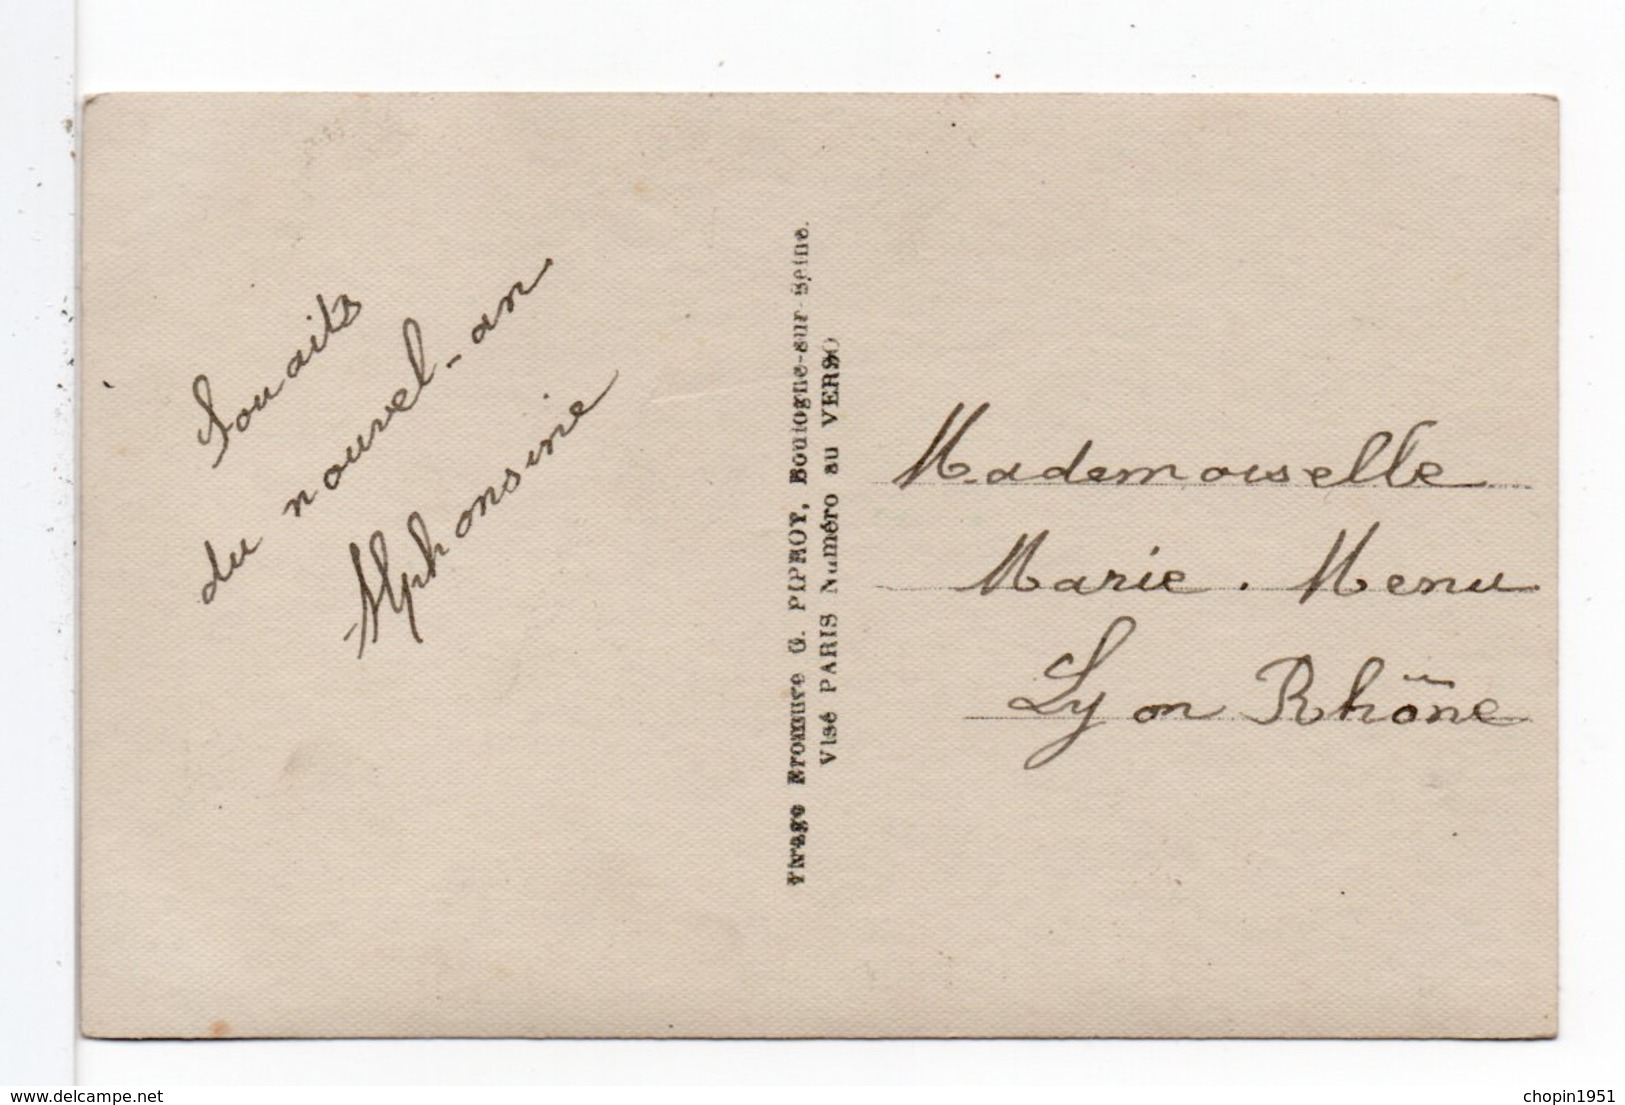 Souaits
du nouvel-an
Alphonsine
Tirage Bromure G. PIPROY, Boulogne-sur-Seine.
Visé PARIS Numéro au VERSO
Mademoiselle
Marie. Menu
Lyon Rhône
delcampe.net
chopin1951